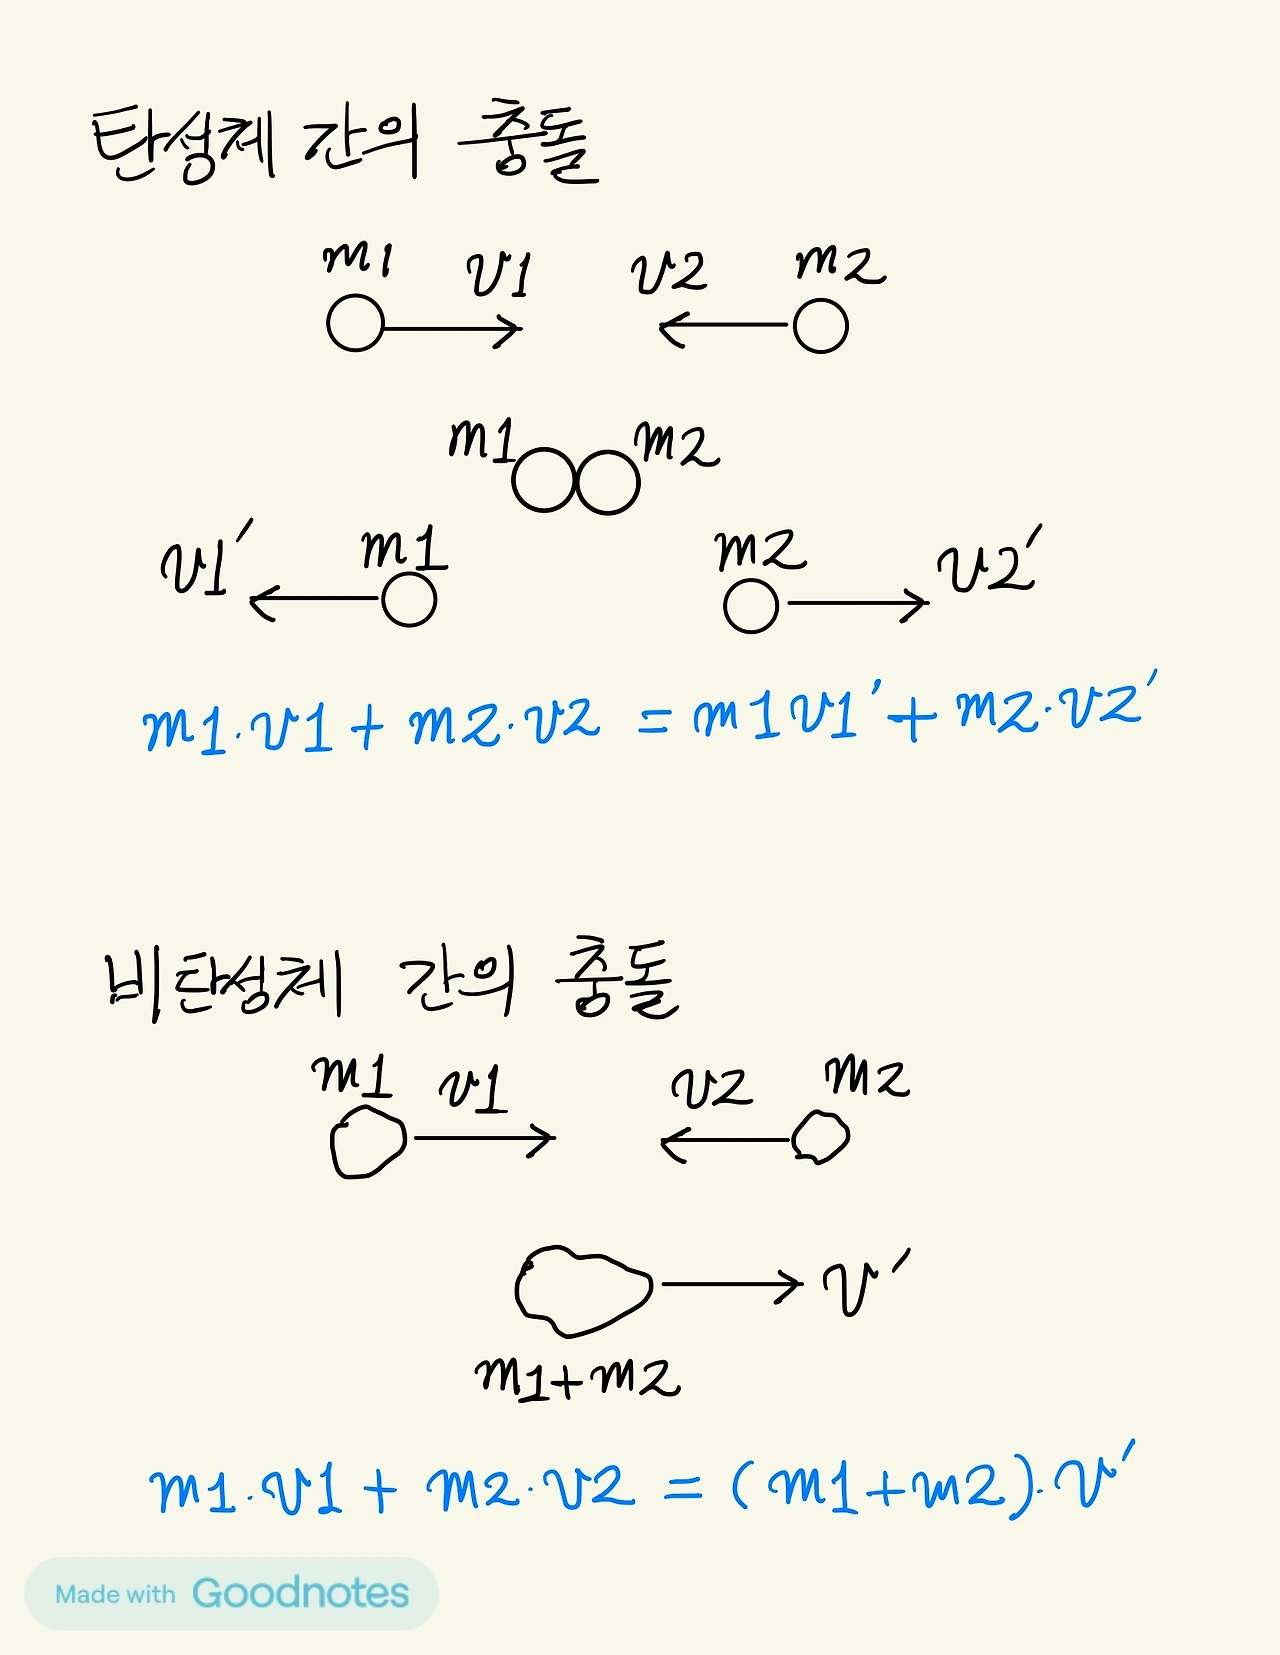 탄성체 간의 충돌
m1 v1 v2 m2
m1 m2
v1' m1 m2 v2'
m1·v1 + m2·v2 = m1v1' + m2·v2'
비탄성체 간의 충돌
m1 v1 v2 m2
v'
m1+m2
m1·v1 + m2·v2 = (m1+m2)·v'
Made with Goodnotes